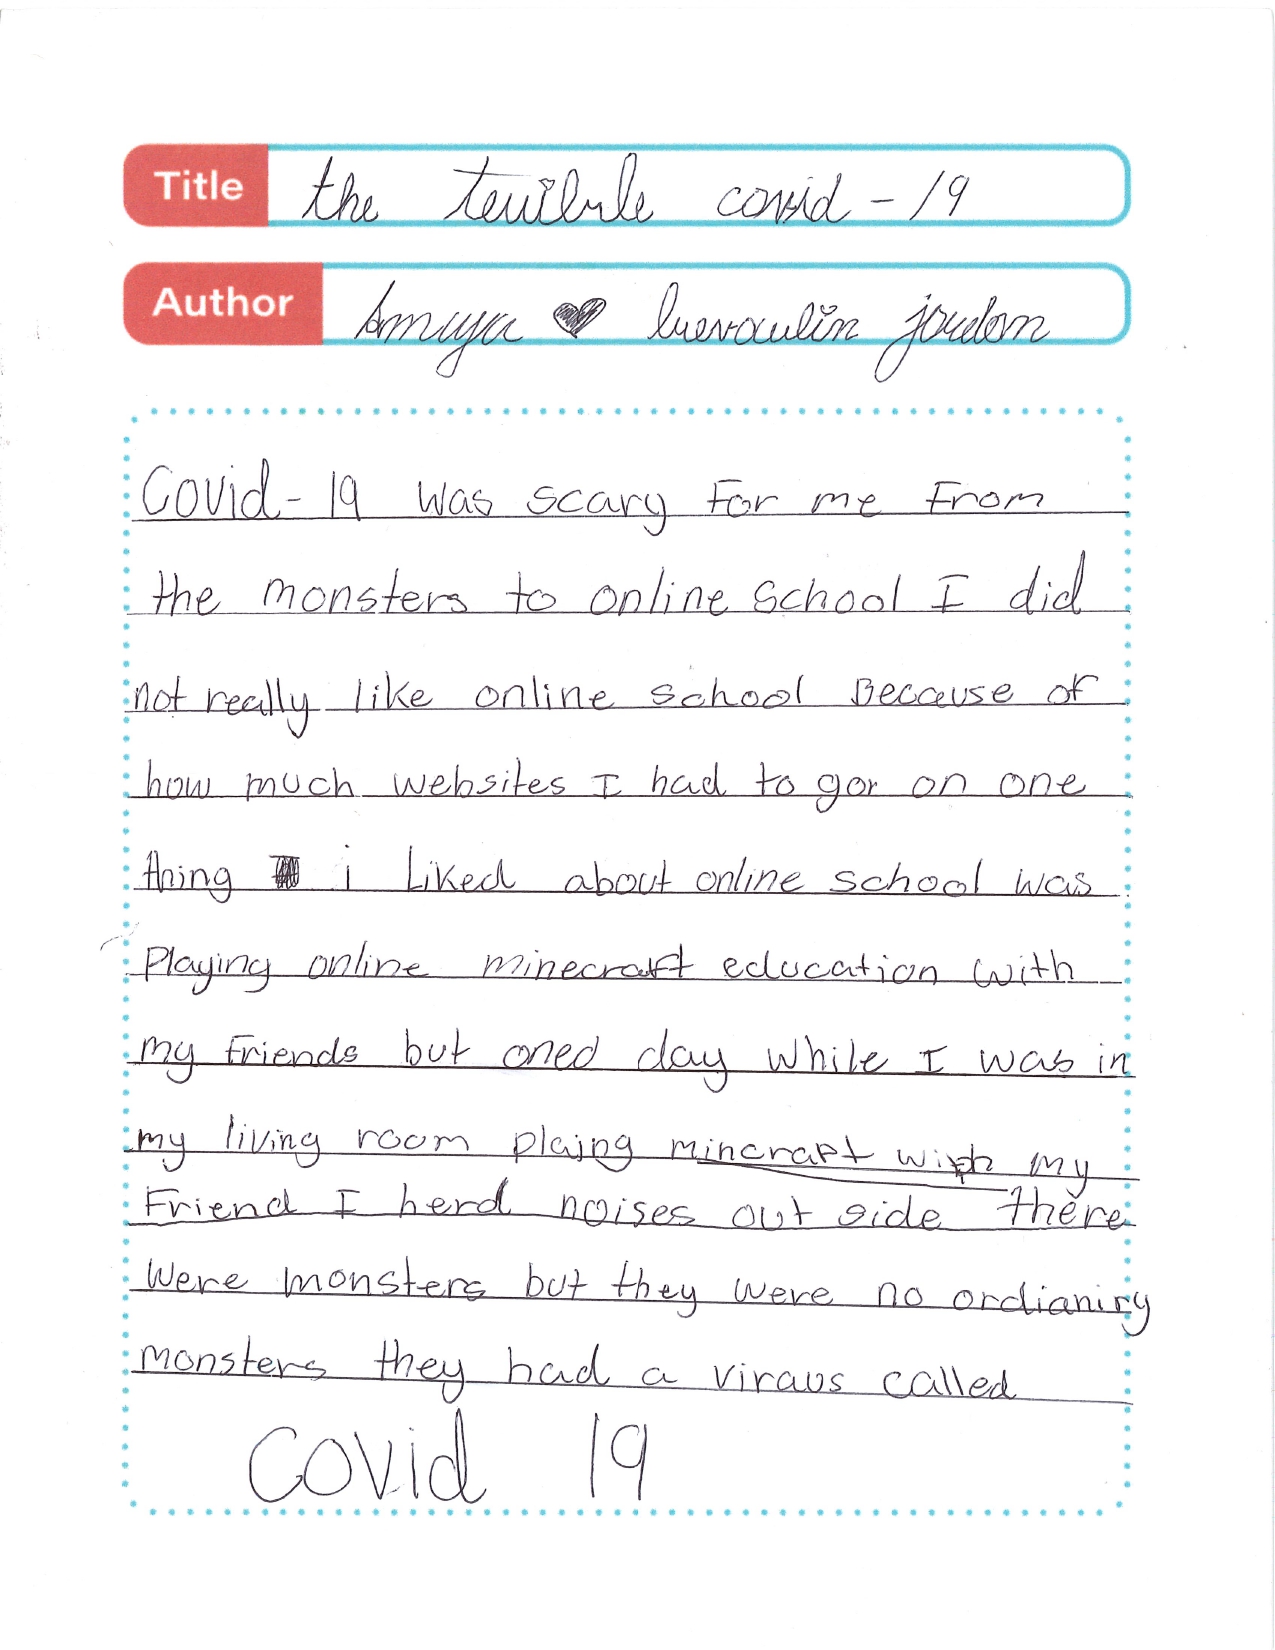 Title the terrible covid-19
Author Amiya jordan
Covid-19 was scary For me From
the monsters to online school I did
not really like online school Because of
how much websites I had to gor on one
thing i Liked about online school was
Playing online minecraft education with
my Friends but oned day while I was in
my living room plajng mincraft with my
Friend I herd noises out side there
were monsters but they were no ordianiry
monsters they had a viraus called
Covid 19